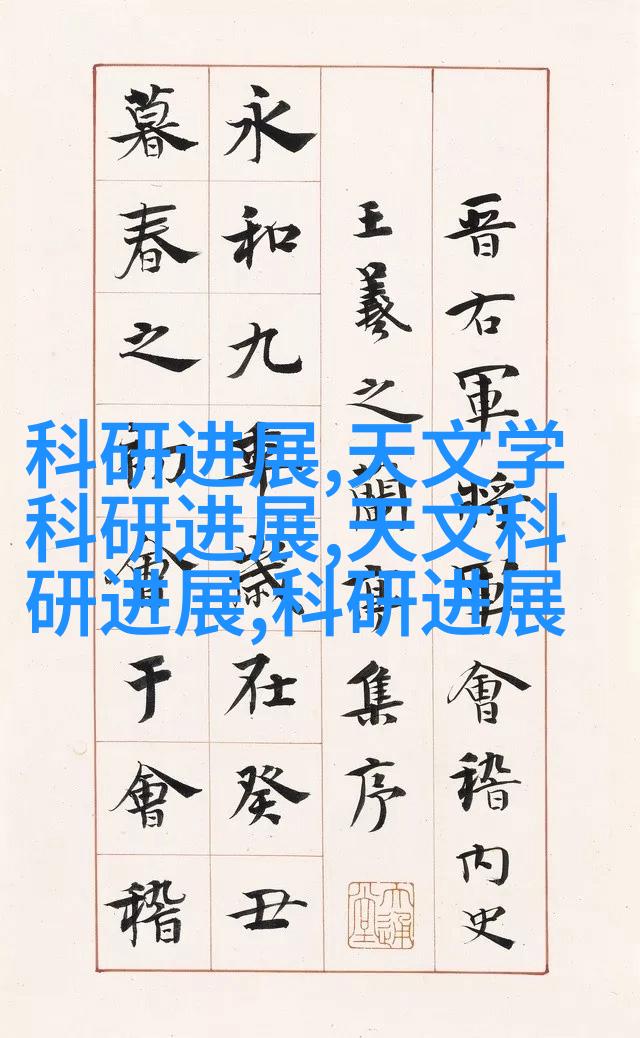 晋右軍将軍會稽内史
王羲之蘭亭集序
永和九年歲在癸丑
暮春之初會于會稽
科研进展,天文学
科研进展,天文科
研进展,科研进展